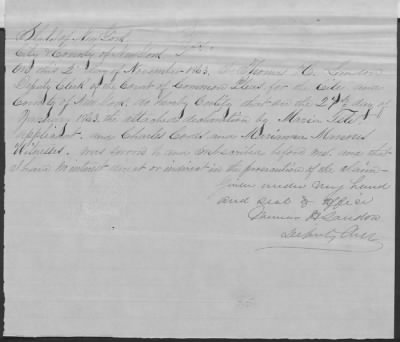 State of New York
City & County of New York } SS.
On this 2d day of November 1863, I Thomas H. Landon
Deputy Clerk of the Court of Common Pleas for the City and
County of New York, do hereby Certify that on the 27th day of
1863 the attached declaration by Maria
applicant and Charles and
Witnesses, was sworn to and subscribed before me, and that
I have no interest direct or indirect in the prosecution of the claim
Given under my hand
and seal of Office
H Landon
Deputy Clerk